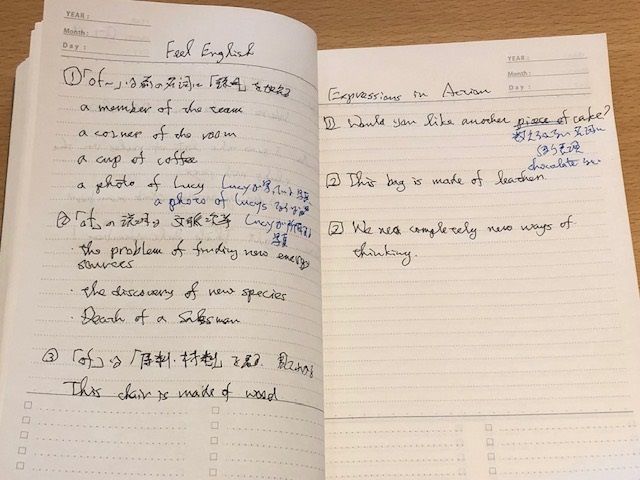 YEAR :
Month :
Day :
Feel English
① 「of～」は前の名詞に「説明」を加える
a member of the team
a corner of the room
a cup of coffee
a photo of Lucy Lucyが写っている写真
a photo of Lucys
② 「of」の説明は文脈次第 Lucyが所有する
写真
・the problem of finding new energy
sources
・the discovery of new species
・Death of a Salesman
③ 「of」は「原料・材料」を
This chair is made of wood
YEAR :
Month :
Day :
Expressions in Action
① Would you like another piece of cake?
数えられない名詞
chocolate
② This bag is made of leather.
② We need completely new ways of
thinking.